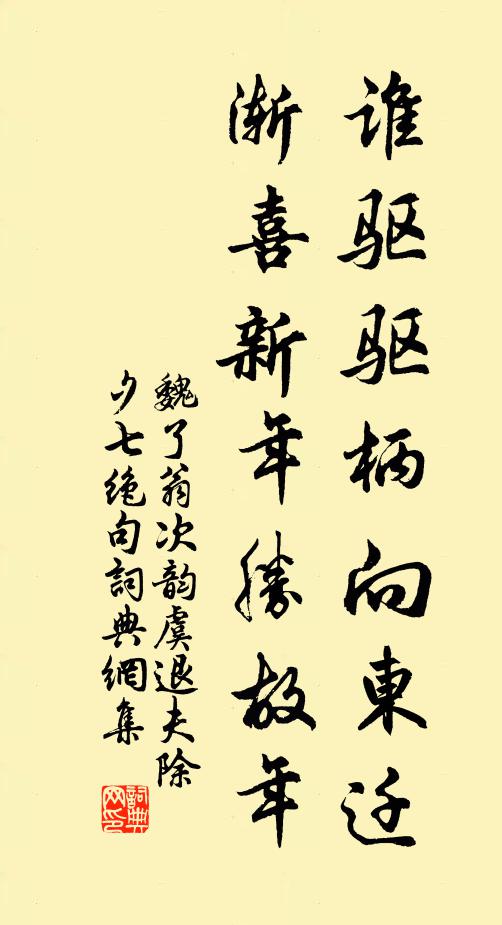 谁驱驱柄向東迁
渐喜新年勝故年
魏了翁次韵虞退夫除
夕七绝句詞典網集
詞典
网印